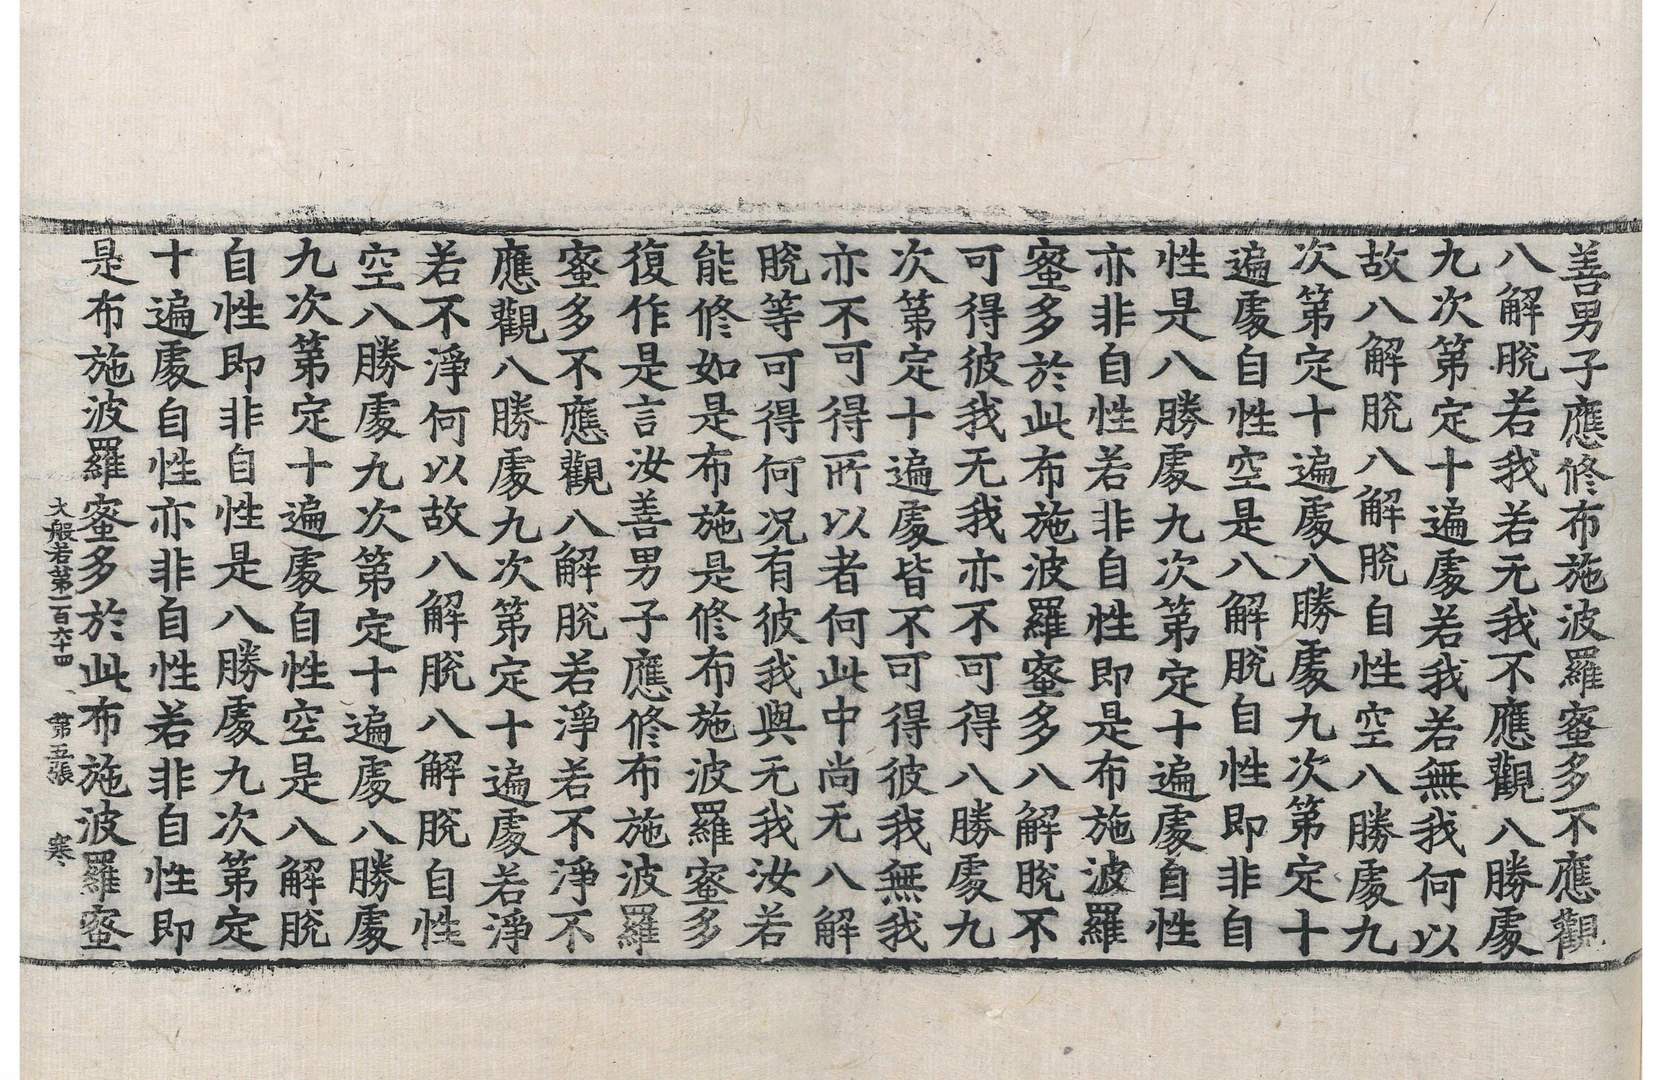 善男子應修布施波羅蜜多不應觀
八解脫若我若无我不應觀八勝處
九次第定十遍處若我若無我何以
故八解脫八解脫自性空八勝處九
次第定十遍處八勝處九次第定十
遍處自性空是八解脫自性即非自
性是八勝處九次第定十遍處自性
亦非自性若非自性即是布施波羅
蜜多於此布施波羅蜜多八解脫不
可得彼我无我亦不可得八勝處九
次第定十遍處皆不可得彼我無我
亦不可得所以者何此中尚无八解
脫等可得何況有彼我與无我汝若
能修如是布施是修布施波羅蜜多
復作是言汝善男子應修布施波羅
蜜多不應觀八解脫若淨若不淨不
應觀八勝處九次第定十遍處若淨
若不淨何以故八解脫八解脫自性
空八勝處九次第定十遍處八勝處
九次第定十遍處自性空是八解脫
自性即非自性是八勝處九次第定
十遍處自性亦非自性若非自性即
是布施波羅蜜多於此布施波羅蜜
大般若第一百六十四 第五張 寒